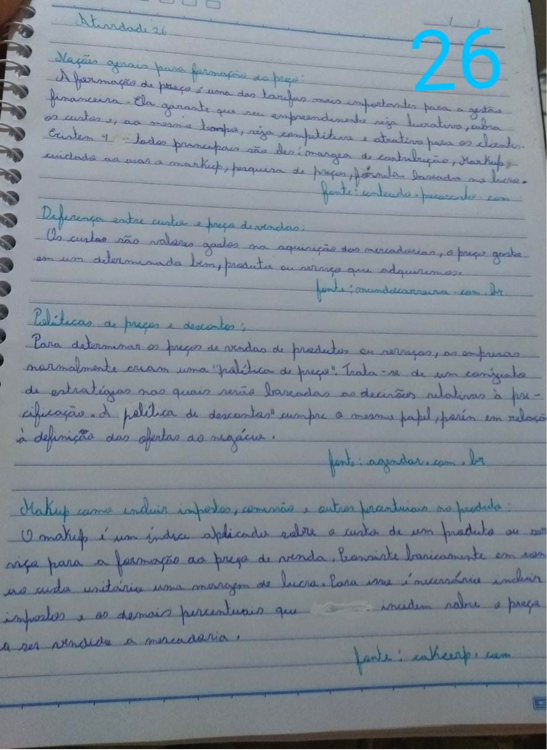 26
Atividade 26
Noções gerais para formação do preço:
A formação de preço é uma das tarefas mais importantes para a gestão
financeira. Ela garante que seu empreendimento seja lucrativo, cubra
os custos e, ao mesmo tempo, seja competitivo e atrativo para os clientes.
todos principais são des: margem de contribuição, Markup,
cuidado ao usar o markup, pesquisa de preços, fórmula baseada no lucro.
fonte: conteudo.
Diferença entre custo e preço de vendas:
Os custos são valores gastos na aquisição das mercadorias, o preço gasto
em um determinado bem, produto ou serviço que adquirimos.
fonte: mundocarreira.com.br
Políticas de preços e descontos:
Para determinar os preços de vendas de produtos ou serviços, as empresas
normalmente criam uma "política de preço". Trata-se de um conjunto
de estratégias nas quais serão baseadas as decisões relativas à pre-
cificação. A política de descontos" cumpre o mesmo papel, porém em relação
à definição das ofertas do negócio.
fonte: agendor.com.br
Makup como incluir impostos, comissão e outros percentuais no produto:
O makup é um índice aplicado sobre o custo de um produto ou ser
viço para a formação ao preço de venda. Consiste basicamente em som
ao custo unitário uma margem de lucro. Para isso é necessário incluir
impostos e os demais percentuais que incidem sobre o preço
a ser vendido a mercadoria.
fonte: cakeerp.com